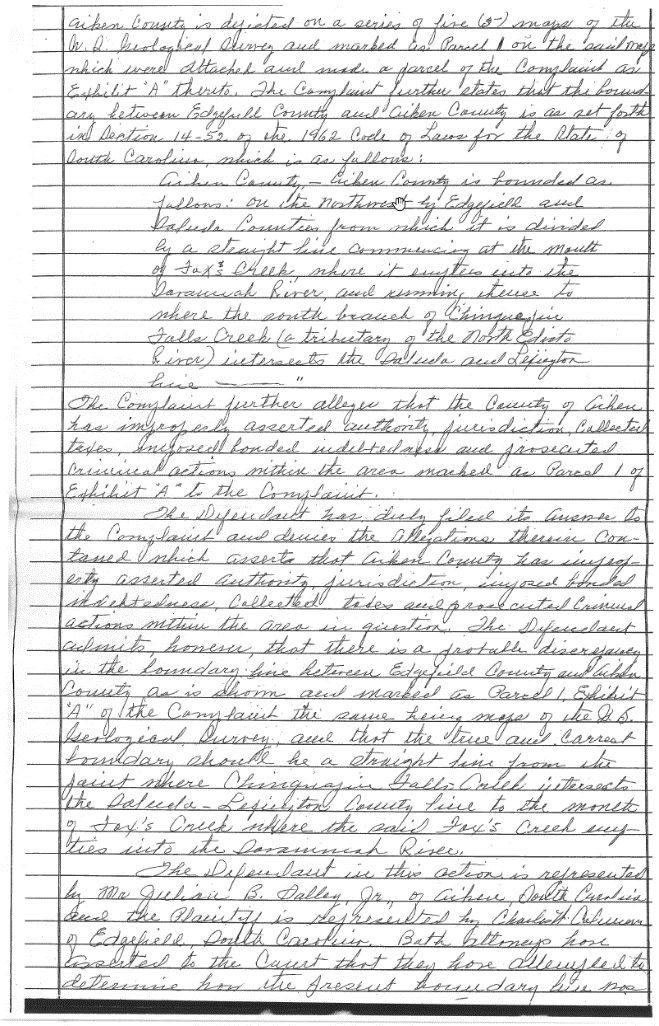 Aiken County is depicted on a series of five (5) maps of the
U.S. Geological Survey and marked as Parcel 1 on the said maps
which were attached and made a parcel of the Complaint as
Exhibit "A" thereto. The Complaint further states that the bound-
ary between Edgefield County and Aiken County is as set forth
in Section 14-52 of the 1962 Code of Laws for the State of
South Carolina, which is as follows:
Aiken County, - Aiken County is bounded as
follows: on the Northwest by Edgefield and
Saluda Counties from which it is divided
by a straight line commencing at the mouth
of Fox's Creek, where it empties into the
Savannah River, and running thence to
where the south branch of Chinquepin
Falls Creek (a tributary of the North Edisto
River) intersects the Saluda and Lexington
line ——— "
The Complaint further alleges that the County of Aiken
has improperly asserted authority, jurisdiction, collected
taxes, imposed bonded indebtedness and prosecuted
criminal actions within the area marked as Parcel 1 of
Exhibit "A" to the Complaint.
The Defendant has duly filed its answer to
the Complaint and denies the allegations therein con-
tained which asserts that Aiken County has improp-
erly asserted authority, jurisdiction, imposed bonded
indebtedness, collected taxes and prosecuted criminal
actions within the area in question. The Defendant
admits, however, that there is a probable discrepancy
in the boundary line between Edgefield County and Aiken
County as is shown and marked as Parcel 1, Exhibit
"A" of the Complaint the same being maps of the U.S.
Geological Survey, and that the true and correct
boundary should be a straight line from the
point where Chinquapin Falls Creek intersects
the Saluda-Lexington County line to the mouth
of Fox's Creek where the said Fox's Creek emp-
ties into the Savannah River.
The Defendant in this action is represented
by Mr Julian B. Salley, Jr., of Aiken, South Carolina
and the Plaintiff is represented by Charles W. Coleman
of Edgefield, South Carolina. Both attorneys have
asserted to the Court that they have attempted to
determine how the present boundary line was